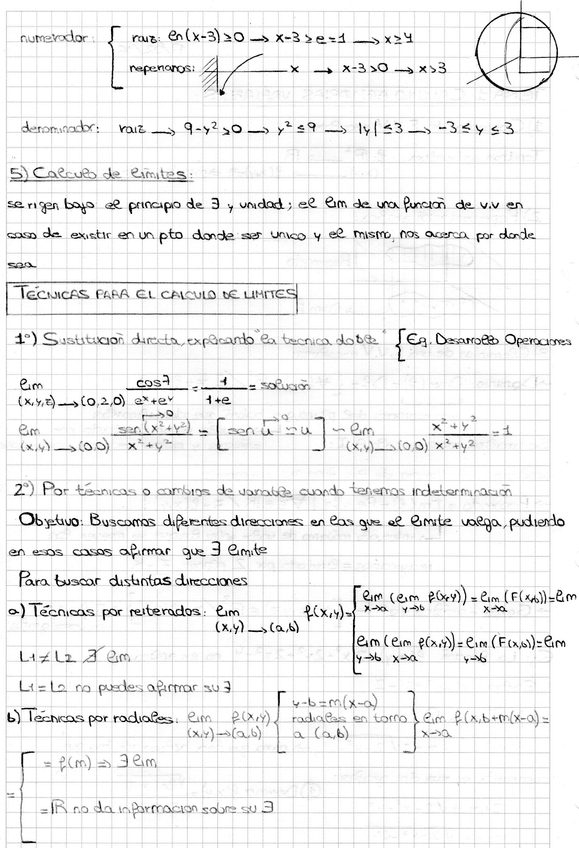 numerador: { raiz: ln(x-3) ≥ 0 → x-3 ≥ e = 1 → x ≥ 4
neperianos: x → x-3 > 0 → x > 3
denominador: raiz → 9-y² > 0 → y² ≤ 9 → |y| ≤ 3 → -3 ≤ y ≤ 3
5) Calculo de limites:
se rigen bajo el principio de ∃ y unidad; el lim de una función de v.v en
caso de existir en un pto donde ser unico y el mismo, nos acerca por donde
sea
TÉCNICAS PARA EL CALCULO DE LIMITES
1º) Sustitución directa, explicando "la tecnica doble" { Eq. Desarrollo Operaciones
lim (x,y,z)→(0,2,0) cosz / e^x+e^y = 1 / 1+e = solución
lim (x,y)→(0,0) sen(x²+y²) / x²+y² = [sen u ≃ u] ~ lim (x,y)→(0,0) x²+y² / x²+y² = 1
2º) Por técnicas o cambios de variable cuando tenemos indeterminación
Objetivo: Buscamos diferentes direcciones en las que el limite valga, pudiendo
en esos casos afirmar que ∃ limite
Para buscar distintas direcciones
a) Técnicas por reiterados: lim (x,y)→(a,b) f(x,y) = [ lim x→a (lim y→b f(x,y)) = lim x→a (F(x,b)) = lim
lim y→b (lim x→a f(x,y)) = lim y→b (F(x,b)) = lim
L1 ≠ L2 ∄ lim
L1 = L2 no puedes afirmar su ∃
b) Técnicas por radiales: lim (x,y)→(a,b) f(x,y) { y-b = m(x-a) radiales en torno a (a,b) } lim x→a f(x, b+m(x-a) =
= [ = f(m) ⇒ ∃ lim
= ℝ no da informacion sobre su ∃